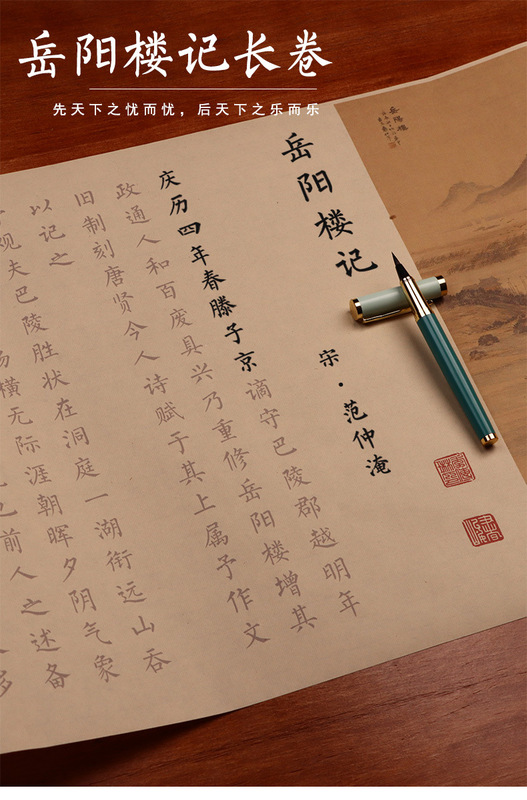 岳阳楼记长卷
先天下之忧而忧，后天下之乐而乐
岳陽樓
岳阳楼记
宋·范仲淹
庆历四年春滕子京谪守巴陵郡越明年
政通人和百废具兴乃重修岳阳楼增其
旧制刻唐贤今人诗赋于其上属予作文
以记之
观夫巴陵胜状在洞庭一湖衔远山吞
汤横无际涯朝晖夕阴气象
前人之述备
多